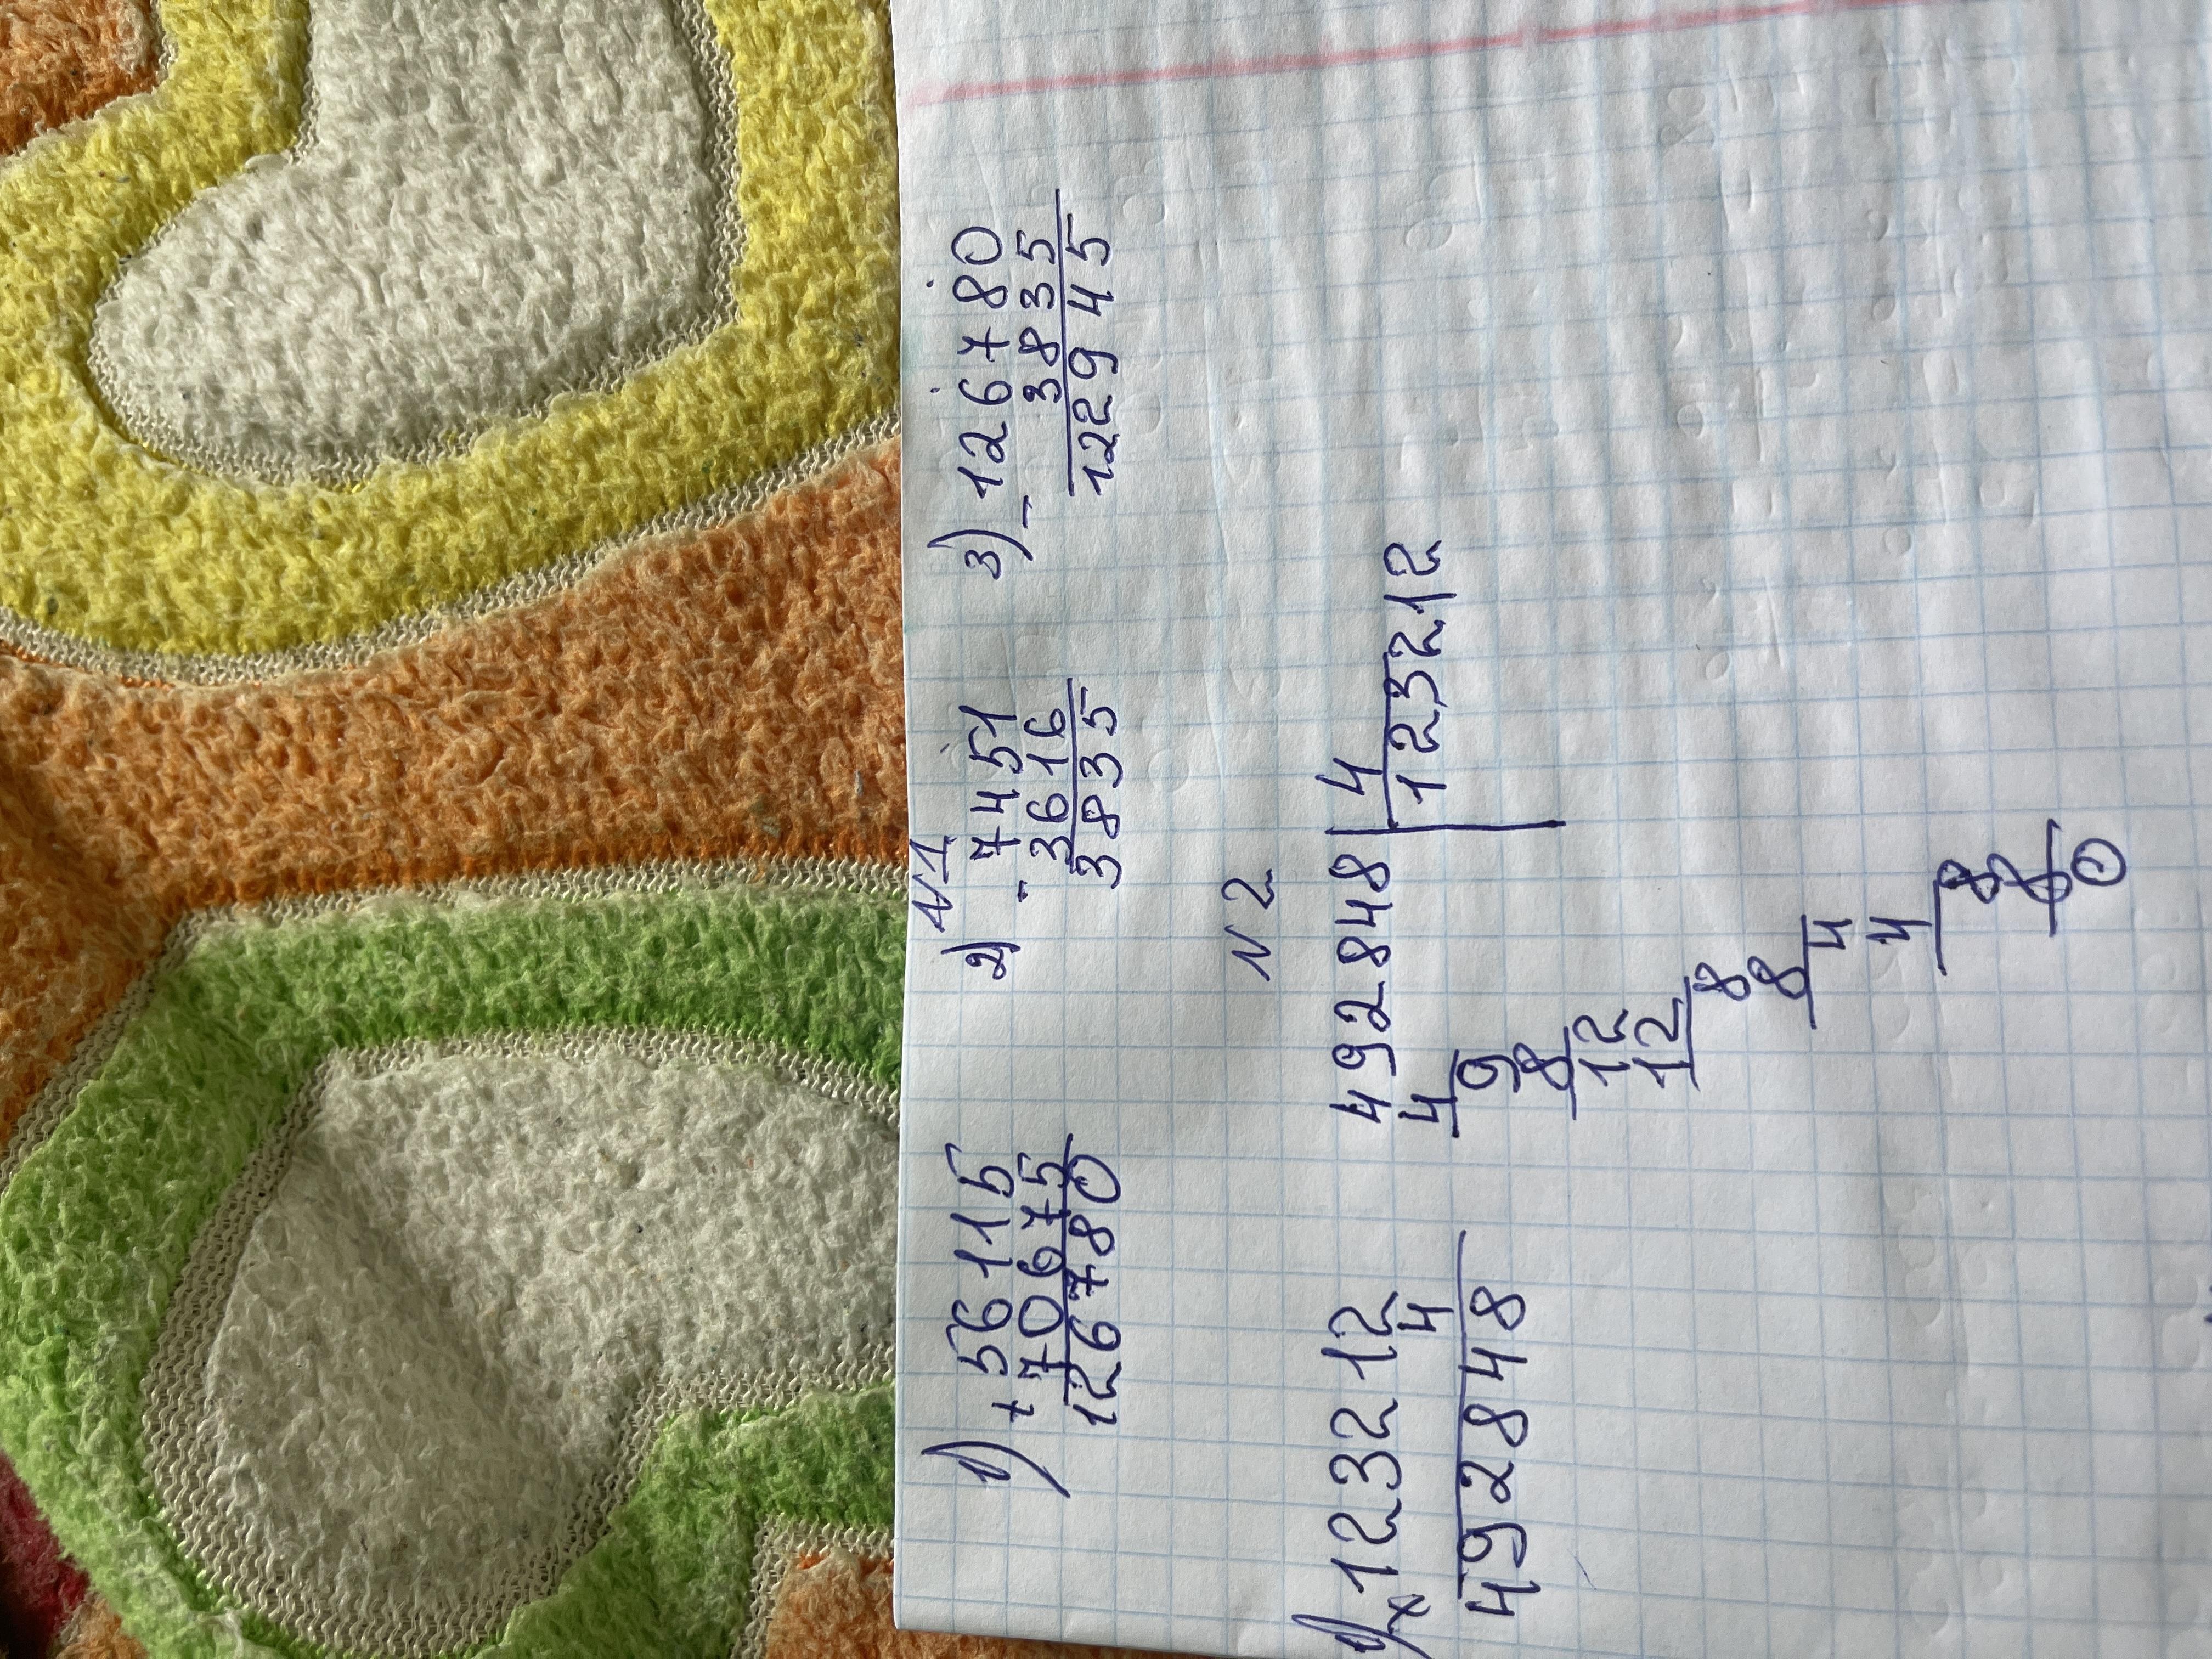 N1
1) + 56115 2) - 7451 3) - 126780
70675 3616 3835
126780 3835 122945
N2
1) x 123212 492848 | 4
4 4 123212
492848 9
8
12
12
8
8
4
4
8
8
0